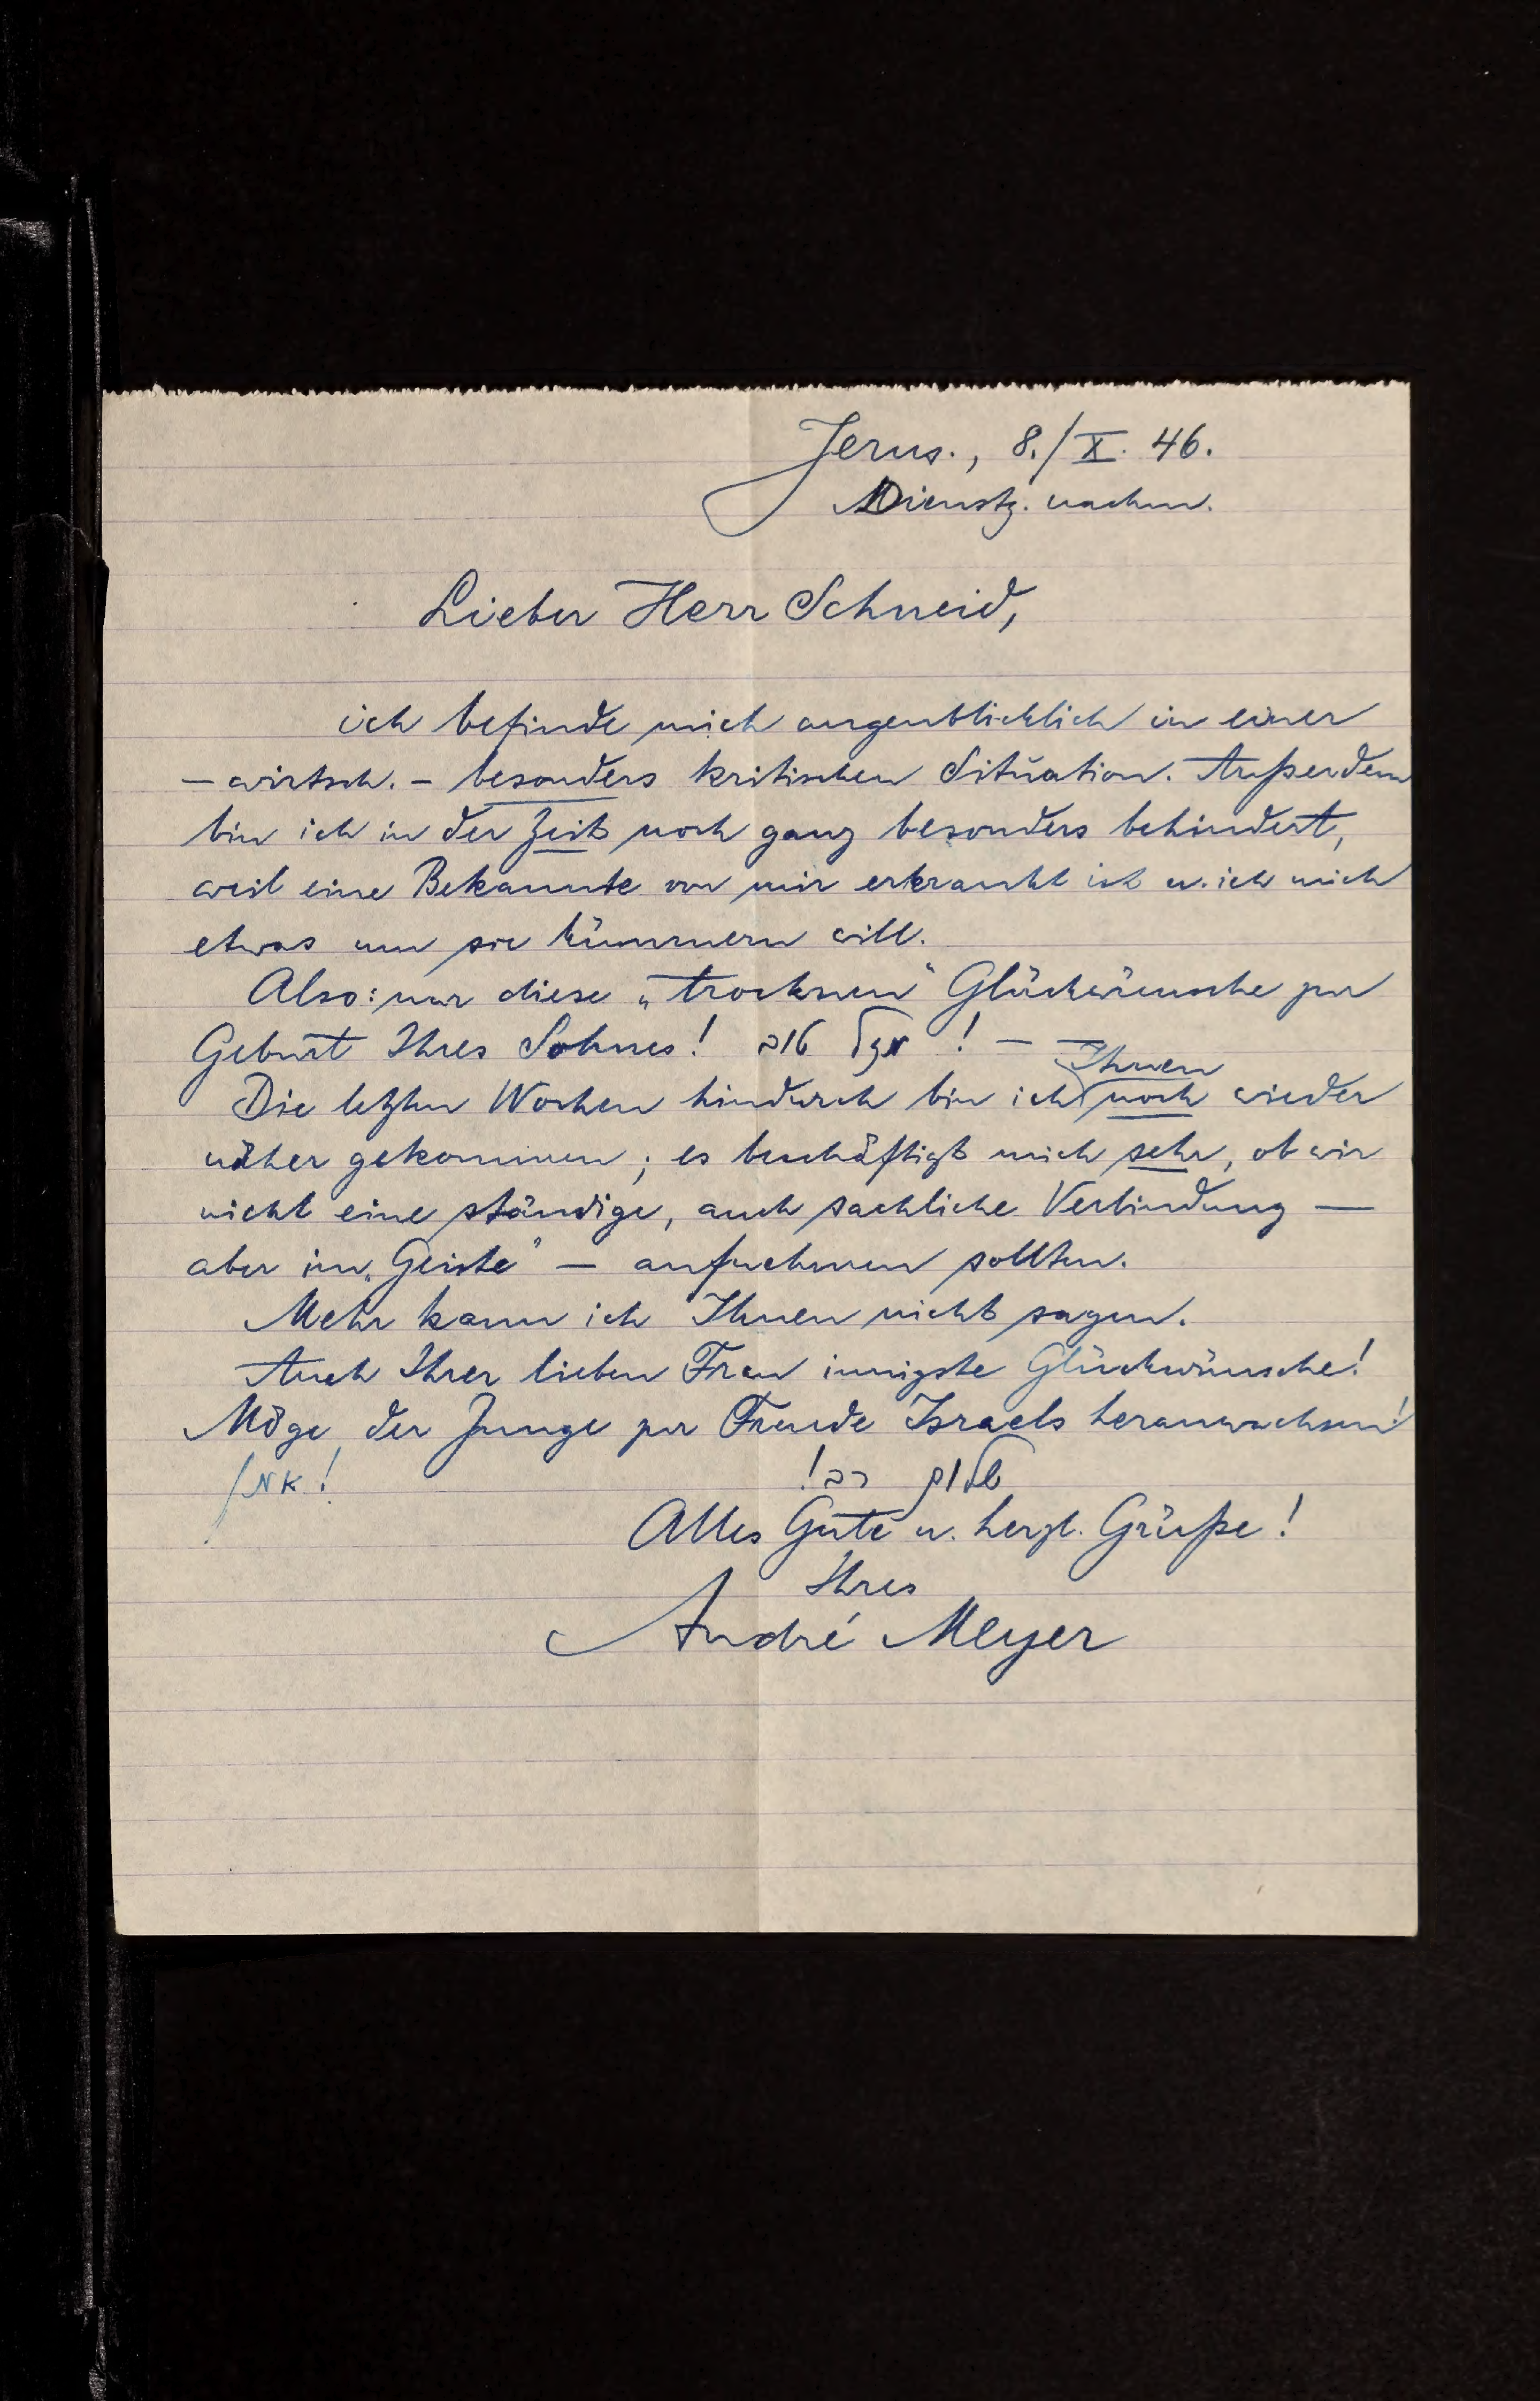 Jerus., 8./X. 46.
Dienstg. nachm.
Lieber Herr Schneid,
ich befinde mich augenblicklich in einer
– wirtsch. – besonders kritischen Situation. Außerdem
bin ich in der Zeit noch ganz besonders behindert,
weil eine Bekannte von mir erkrankt ist u. ich mich
etwas um sie kümmern will.
Also: nur diese „trocknen“ Glückwünsche zur
Geburt Ihres Sohnes! מזל טוב! –
Ihnen
Die letzten Wochen hindurch bin ich noch wieder
näher gekommen; es beschäftigt mich sehr, ob wir
nicht eine ständige, auch sachliche Verbindung —
aber im „Geiste“ — aufnehmen sollten.
Mehr kann ich Ihnen nicht sagen.
Auch Ihrer lieben Frau innigste Glückwünsche!
Möge der Junge zur Freude Israels heranwachsen!
אמן!
שלום רב!
Alles Gute u. herzl. Grüße!
Ihres
André Meyer